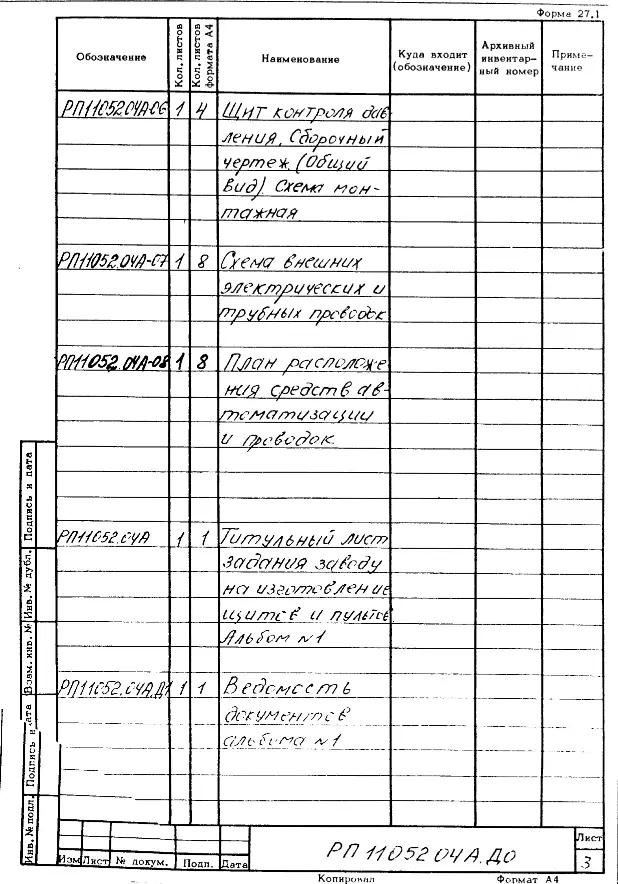 Форма 27.1
Обозначение Кол. листов Кол. листов формата А4 Наименование Куда входит (обозначение) Архивный инвентар- ный номер Приме- чание
РП11052.04А-06 1 4 Щит контроля дав-
ления. Сборочный
чертеж. (Общий
вид). Схема мон-
тажная
РП11052.04А-07 1 8 Схема внешних
электрических и
трубных проводок
РП11052.04А-08 1 8 План расположе
ния средств ав-
томатизации
и проводок.
РП11052.04А 1 1 Титульный лист
задания заводу
на изготовление
щитов и пультов
Альбом №1
РП11052.04А.Д1 1 1 Ведомость
документов
альбома №1
Инв. № подл. Подпись и дата Взам. инв. № Инв. № дубл. Подпись и дата
Изм Лист № докум. Подп. Дата
РП 11052 04А.ДО
Лист
3
Копировал Формат А4